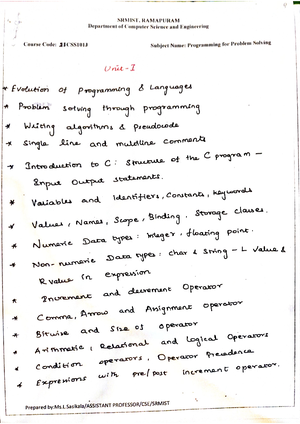 SRMIST, RAMAPURAM
Department of Computer Science and Engineering
Course Code: 21CSS101J Subject Name: Programming for Problem Solving
Unit-I
* Evolution of Programming & Languages
* Problem solving through programming
* Writing algorithms & Pseudocode
* Single line and multiline comments
* Introduction to C: Structure of the C program -
Input Output statements.
* Variables and Identifiers, Constants, Keywords
* Values, Names, Scope, Binding, Storage classes.
* Numeric Data types: Integer, floating point.
* Non-numeric Data types: char & string - L value &
R value in expression
* Increment and decrement Operator
* Comma, Arrow and Assignment operator
* Bitwise and Size of operator
* Arithmetic, Relational and logical Operators
* Condition operators, Operator Precedence
* Expressions with pre/post increment operator.
Prepared by:Ms.L.Sasikala/ASSISTANT PROFESSOR/CSE/SRMIST